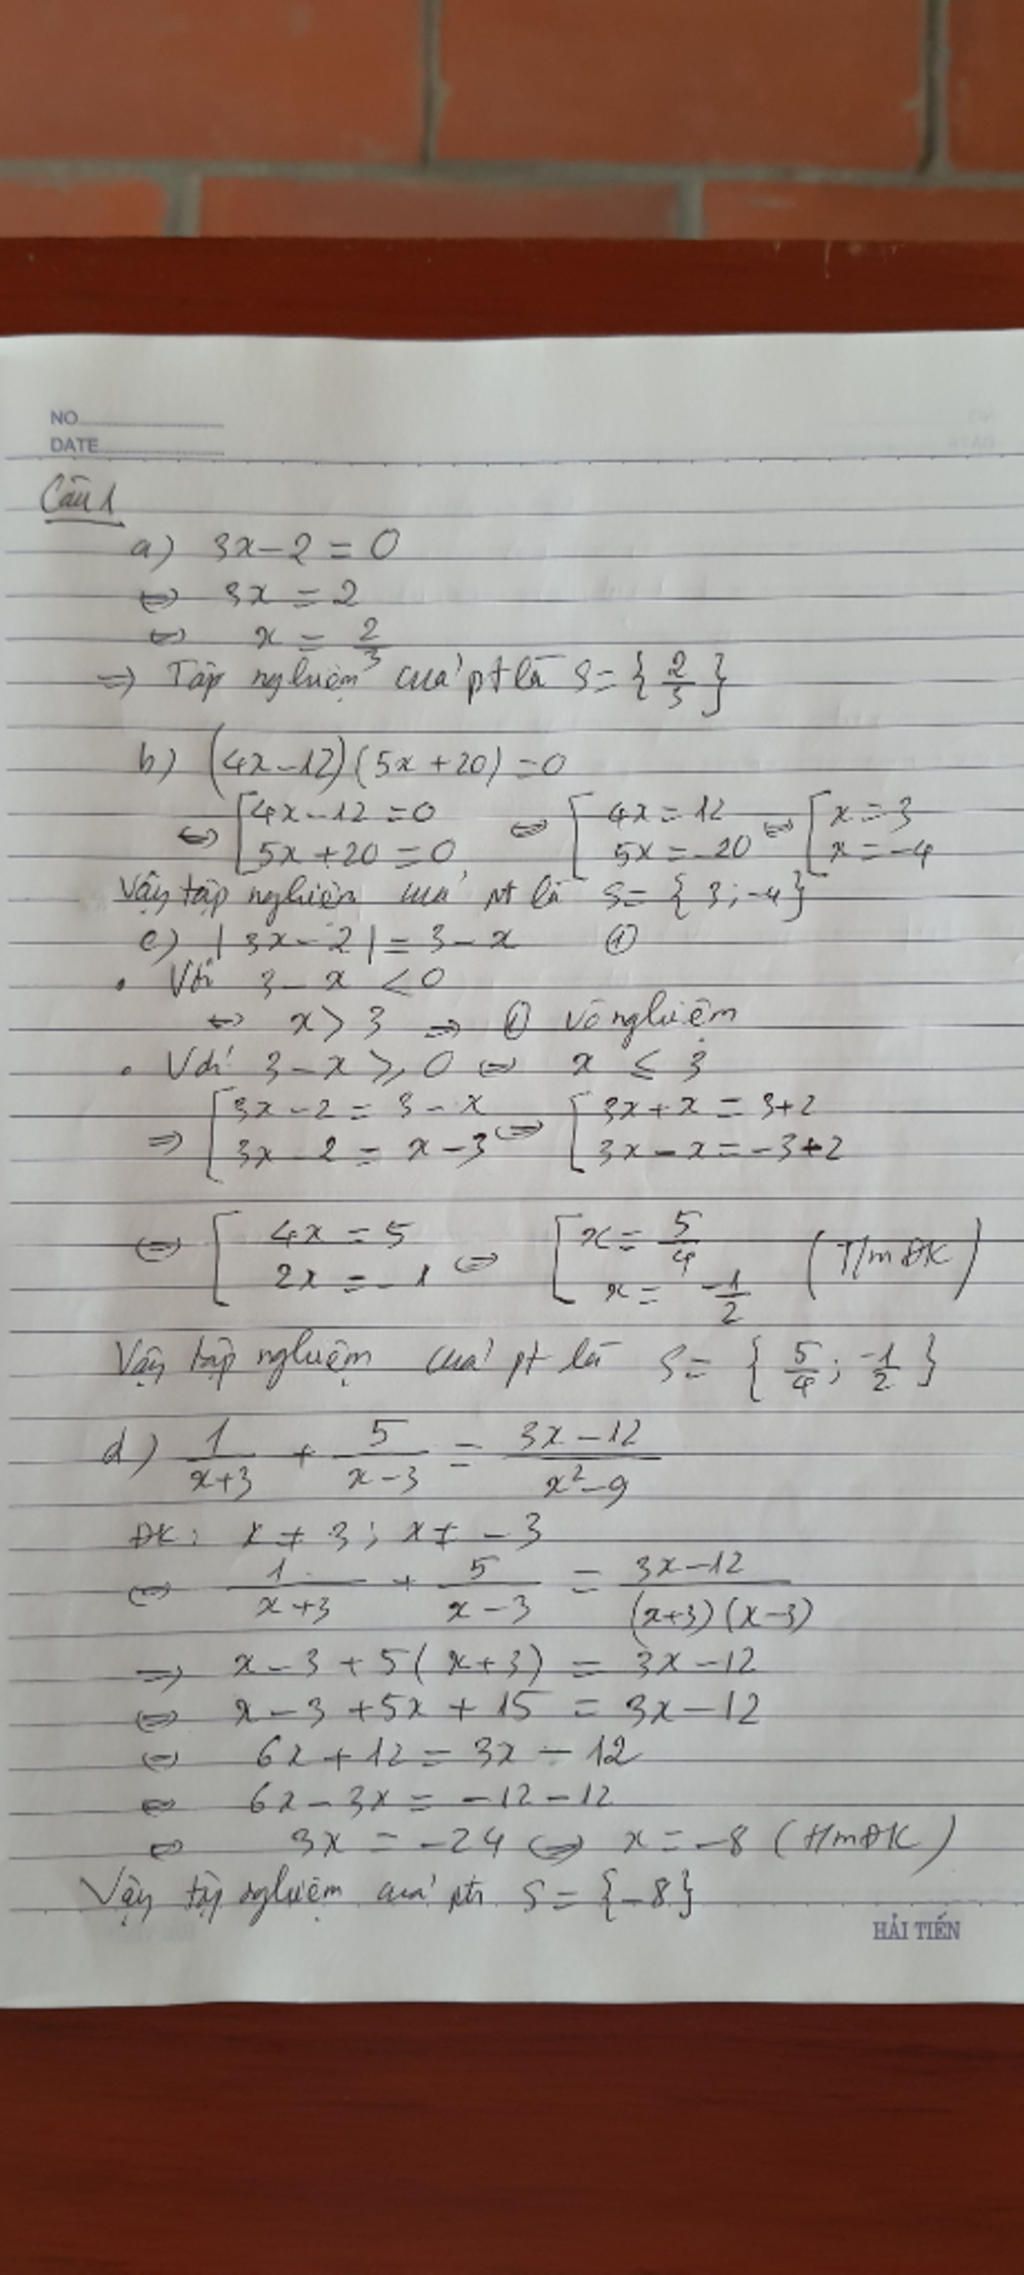 NO
DATE
Câu 1
a) 3x - 2 = 0
⇔ 3x = 2
⇔ x = 2/3
⇒ Tập nghiệm của pt là S = {2/3}
b) (4x - 12)(5x + 20) = 0
⇔ [4x - 12 = 0 ⇔ [4x = 12 ⇔ [x = 3
5x + 20 = 0 5x = -20 x = -4
Vậy tập nghiệm của pt là S = {3; -4}
c) |3x - 2| = 3 - x ①
• Với 3 - x < 0
⇔ x > 3 ⇒ ① vô nghiệm
• Với 3 - x ≥ 0 ⇔ x ≤ 3
⇒ [3x - 2 = 3 - x ⇔ [3x + x = 3 + 2
3x - 2 = x - 3 3x - x = -3 + 2
⇔ [4x = 5 ⇔ [x = 5/4 (T/m ĐK)
2x = -1 x = -1/2
Vậy tập nghiệm của pt là S = {5/4; -1/2}
d) 1/(x+3) + 5/(x-3) = (3x-12)/(x²-9)
ĐK: x ≠ 3; x ≠ -3
⇔ 1/(x+3) + 5/(x-3) = (3x-12)/((x+3)(x-3))
⇒ x - 3 + 5(x+3) = 3x - 12
⇔ x - 3 + 5x + 15 = 3x - 12
⇔ 6x + 12 = 3x - 12
⇔ 6x - 3x = -12 - 12
⇔ 3x = -24 ⇔ x = -8 (t/m ĐK)
Vậy tập nghiệm của ptr S = {-8}
HẢI TIẾN